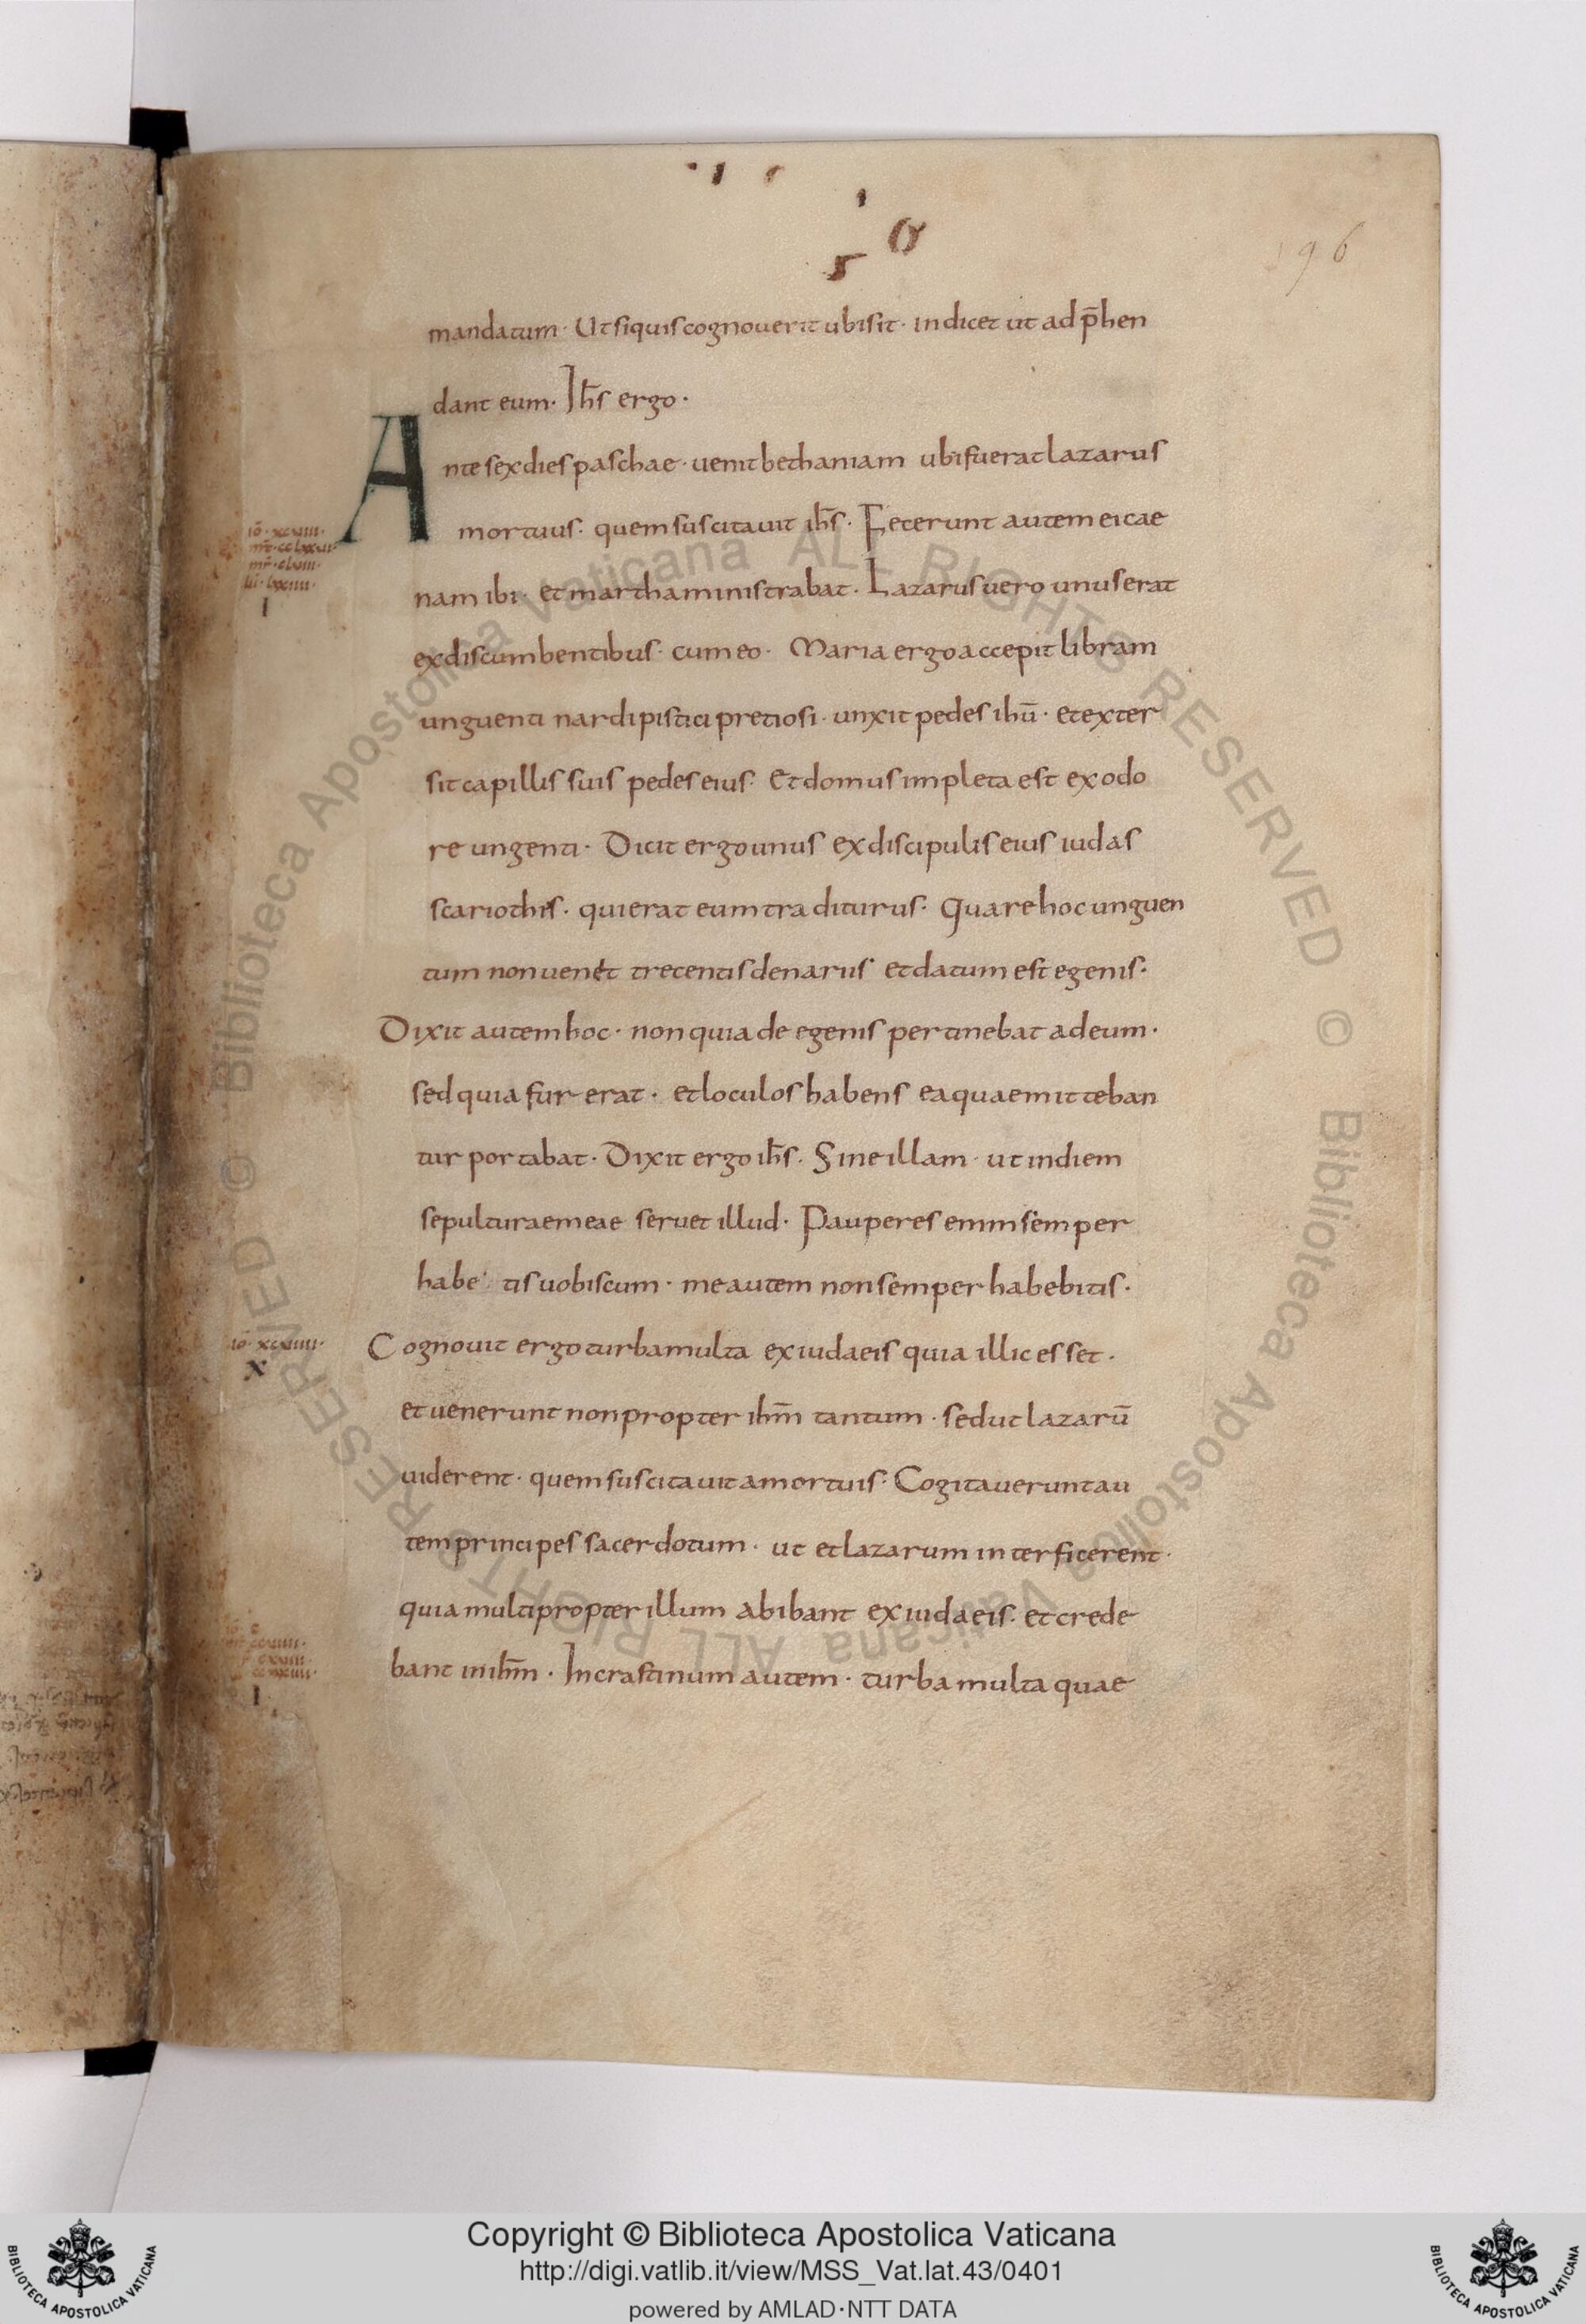 196
mandatum· Ut siquis cognouerit ubi sit· indicet ut adp̄hen
dant eum· Ih̅s ergo·
Ante sex dies paschae· uenit bethaniam ubi fuerat lazarus
mortuus· quem suscitauit ih̅s· Fecerunt autem ei cae
nam ibi· et martha ministrabat· Lazarus uero unus erat
ex discumbentibus· cum eo· Maria ergo accepit libram
unguenti nardi pistici pretiosi· unxit pedes ihū· et exter
sit capillis suis pedes eius· Et domus impleta est ex odo
re ungenti· Dicit ergo unus ex discipulis eius iudas
scariothis· qui erat eum traditurus· Quare hoc unguen
tum non uenet trecentis denariis et datum est egenis·
Dixit autem hoc· non quia de egenis pertinebat ad eum·
sed quia fur erat· et loculos habens ea quae mitteban
tur portabat· Dixit ergo ih̅s· Sine illam· ut in diem
sepulturae meae seruet illud· Pauperes enim semper
habe tis uobiscum· me autem non semper habebitis·
iō· xcviiii·
x
Cognouit ergo turba multa ex iudaeis quia illic esset·
et uenerunt non propter ihm̅ tantum· sed ut lazarū
uiderent· quem suscitauit a mortuis· Cogitauerunt au
tem principes sacerdotum· ut et lazarum interficerent·
quia multi propter illum abibant ex iudaeis· et crede
bant in ihm̅· In crastinum autem· turba multa quae
Copyright © Biblioteca Apostolica Vaticana
http://digi.vatlib.it/view/MSS_Vat.lat.43/0401
powered by AMLAD·NTT DATA
BIBLIOTECA APOSTOLICA VATICANA
BIBLIOTECA APOSTOLICA VATICANA
© Biblioteca Apostolica Vaticana ALL RIGHTS RESERVED © Biblioteca Apostolica Vaticana ALL RIGHTS RESERVED